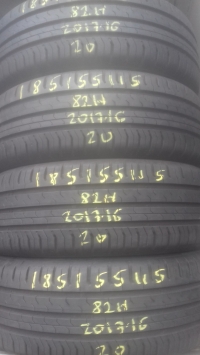 185155115
82H
2017-16
20
185155115
82H
2017-16
20
185155115
82H
2017-16
20
185155115
82H
2017-16
20